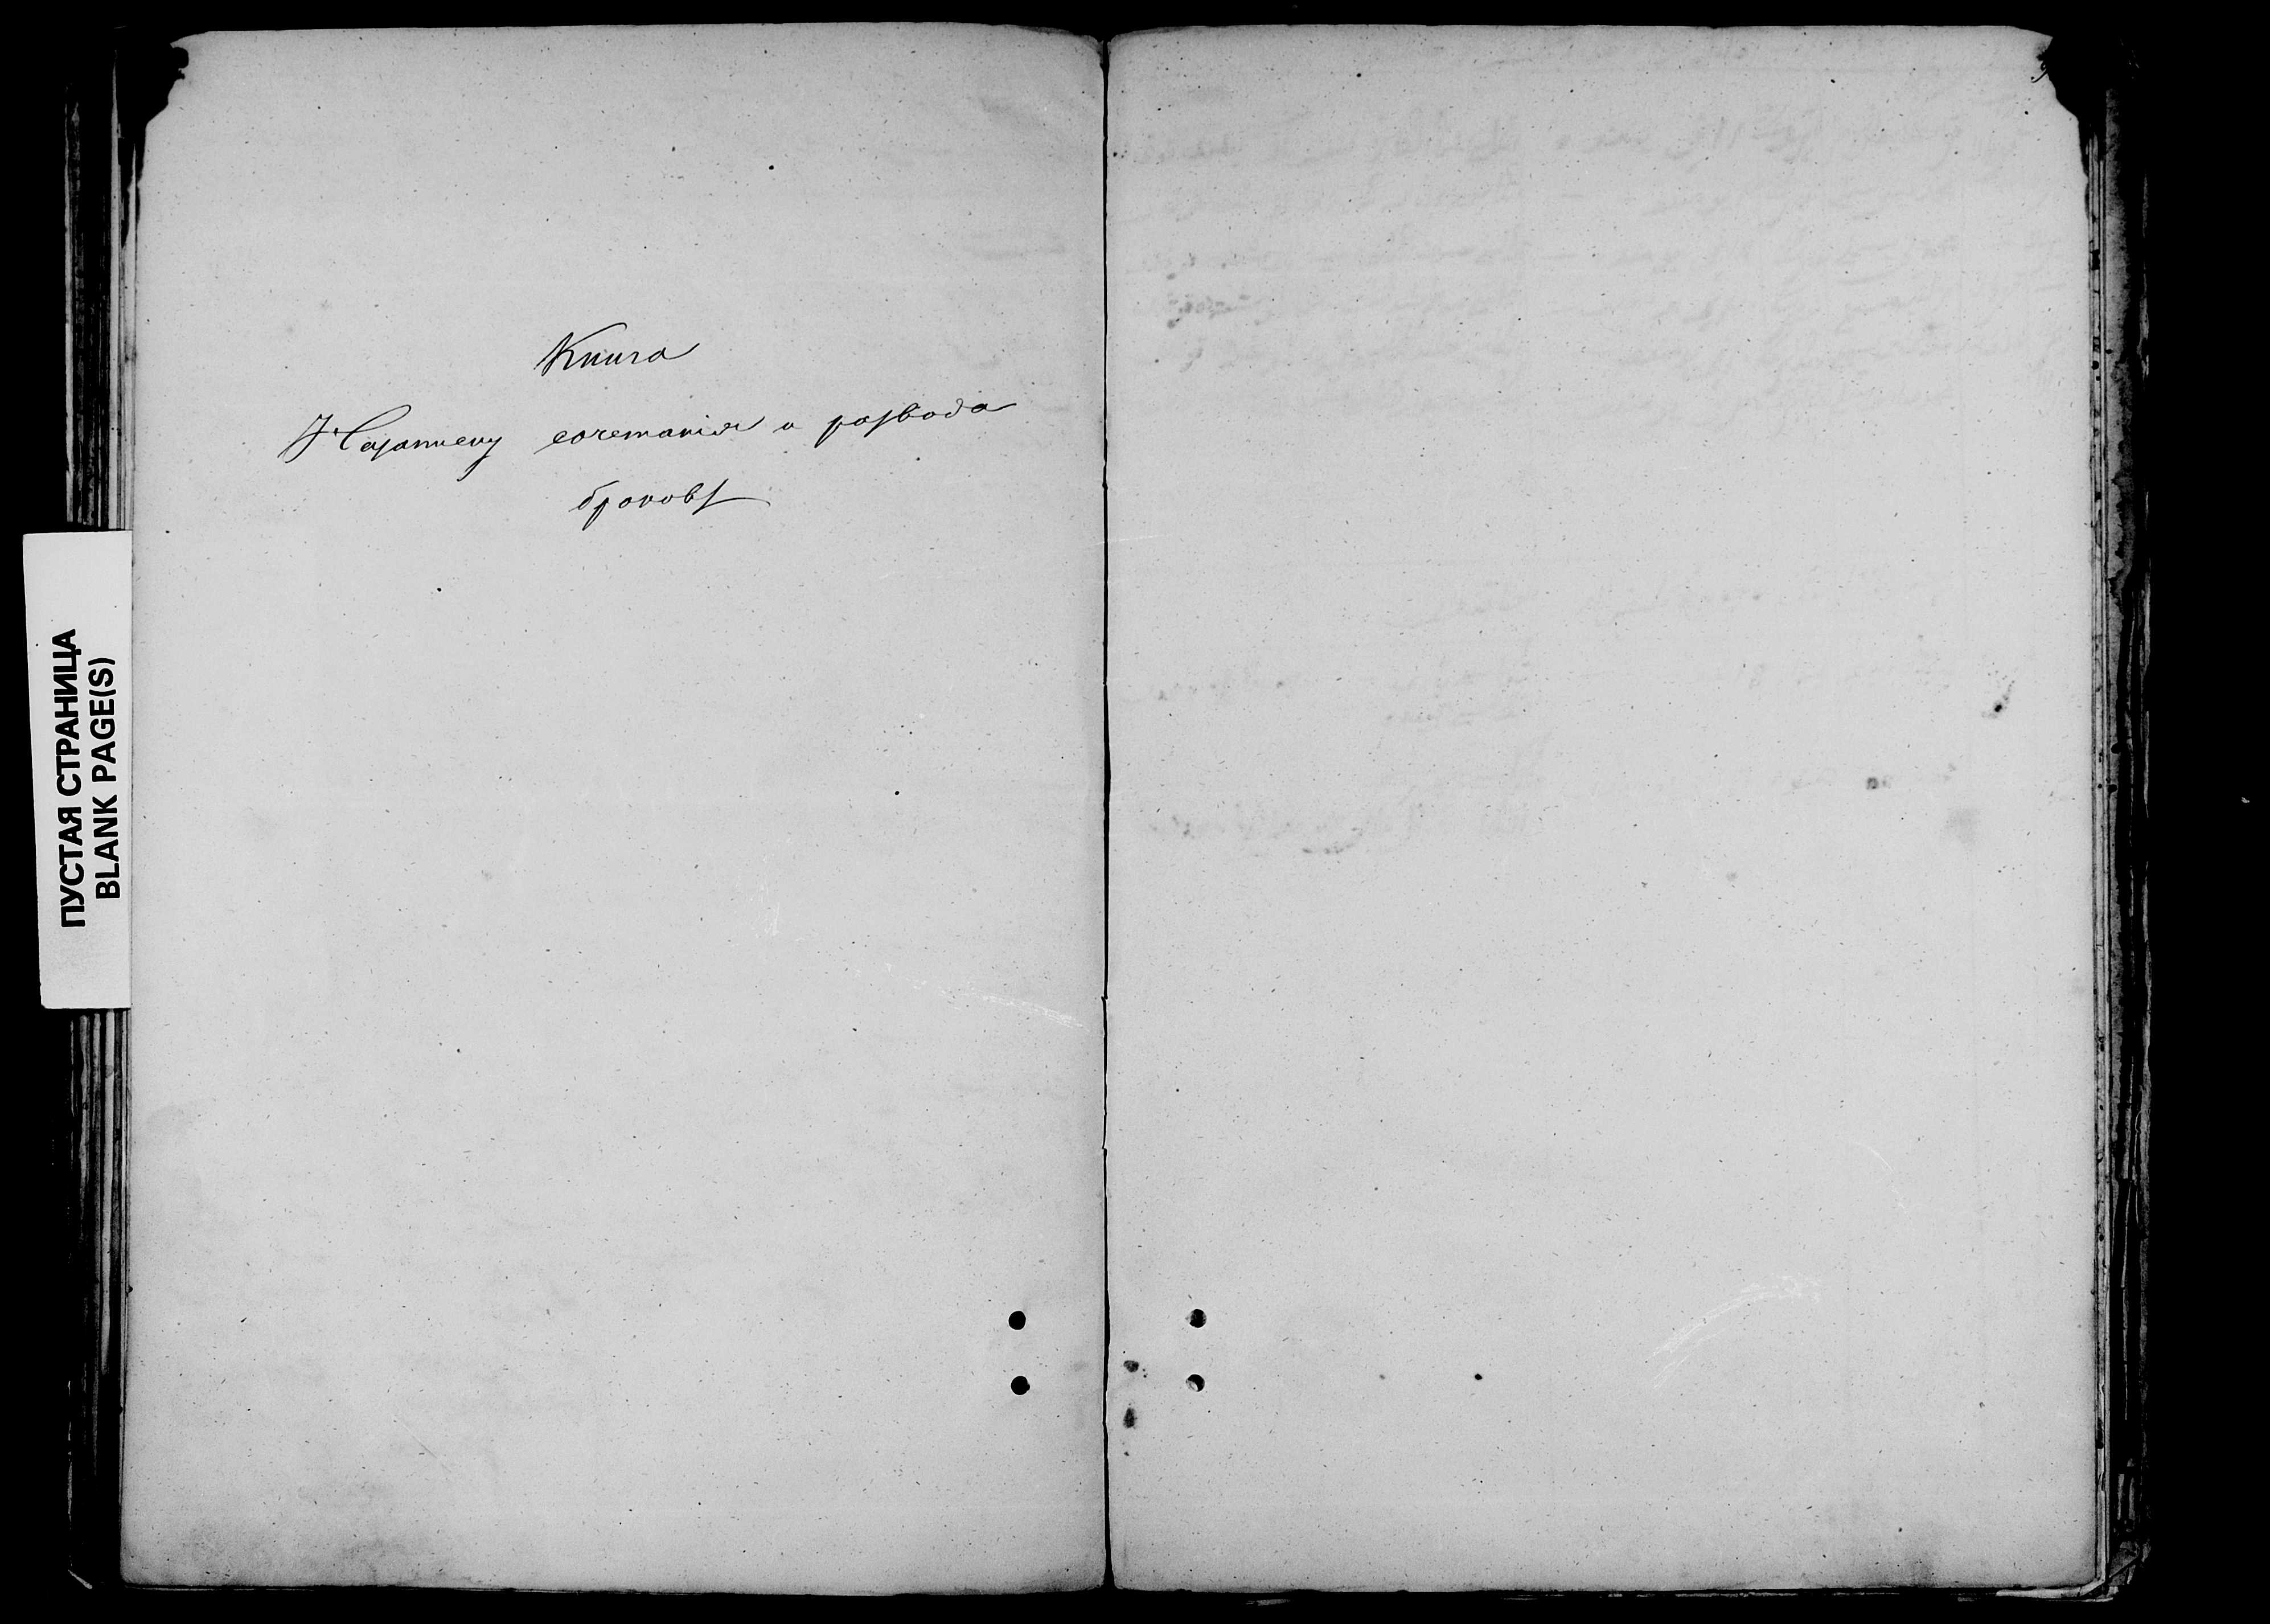 ПУСТАЯ СТРАНИЦА
BLANK PAGE(S)
Книга
сочетанія и развода
браковъ